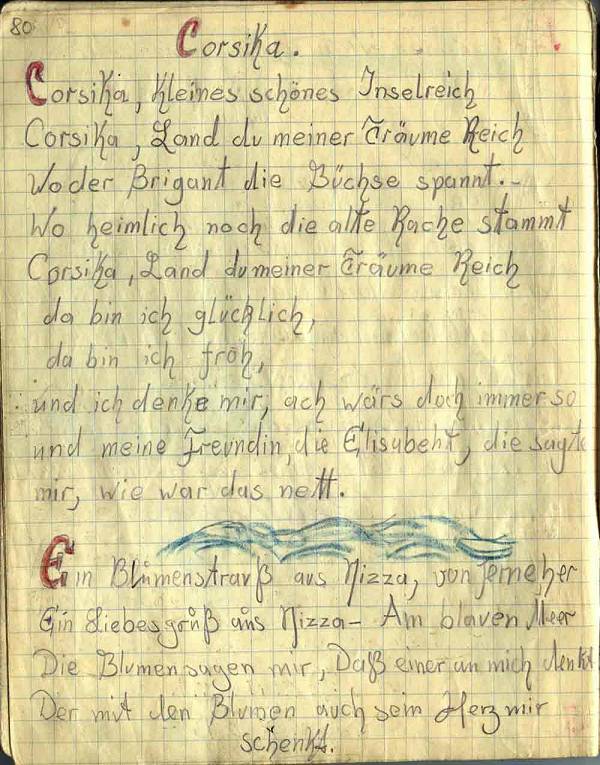 80
Corsika.
Corsika, kleines schönes Inselreich
Corsika, Land du meiner Träume Reich
Wo der Brigant die Büchse spannt.-
Wo heimlich noch die alte Rache stammt
Corsika, Land du meiner Träume Reich
da bin ich glücklich,
da bin ich froh,
und ich denke mir, ach wärs doch immer so
und meine Freundin, die Elisabeht, die sagte
mir, wie war das nett.
Ein Blumenstrauß aus Nizza, von ferne her
Ein Liebesgruß aus Nizza- Am blauen Meer
Die Blumen sagen mir, Daß einer an mich denkt
Der mit den Blumen auch sein Herz mir
schenkt.